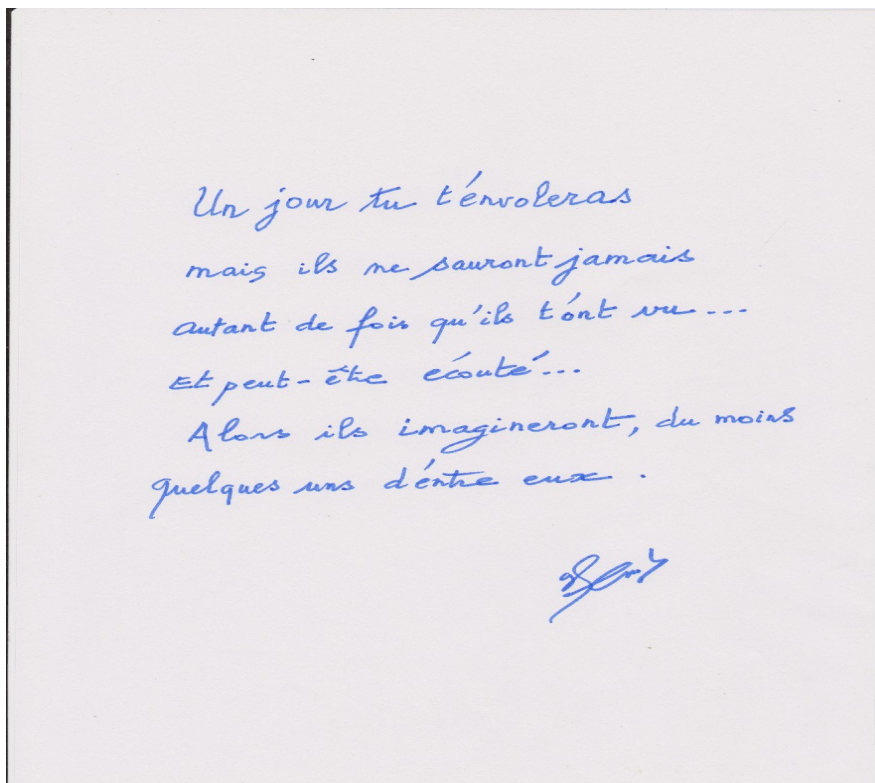 Un jour tu t'envoleras
mais ils ne sauront jamais
autant de fois qu'ils t'ont vu...
Et peut-être écouté...
Alors ils imagineront, du moins
quelques uns d'entre eux.